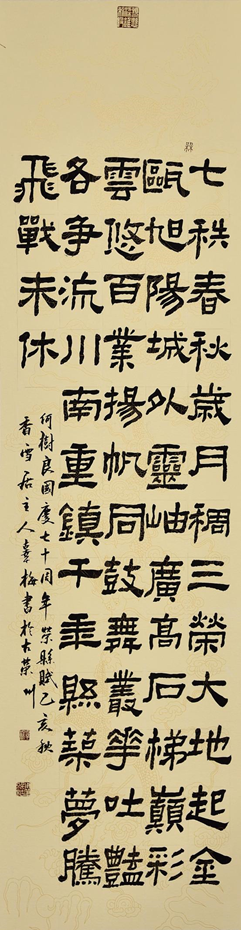 七秩春秋歲月稠三榮大地起金
甌旭陽城外靈岫廣高石梯巔彩
雲悠百業揚帆同鼓舞叢華吐豔
各争流川南重鎮千乘縣築夢騰
飛戰未休
何樹良國慶七十周年榮縣賦己亥秋
香雪居主人袁梅書於古榮州